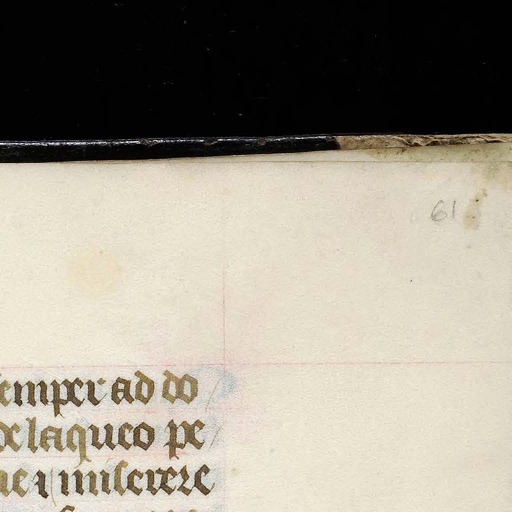 61
emper ad do
laqueo pe
me i miserere